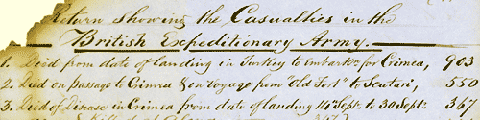 Return showing the Casualties in the
British Expeditionary Army.
1. Died from date of landing in Turkey to embarkn for Crimea, 903
2. Died on passage to Crimea & on Voyage from "Old Fort" to Scutari, 550
3. Died of Disease in Crimea from date of landing 14th Sept. to 30 Sept. 367